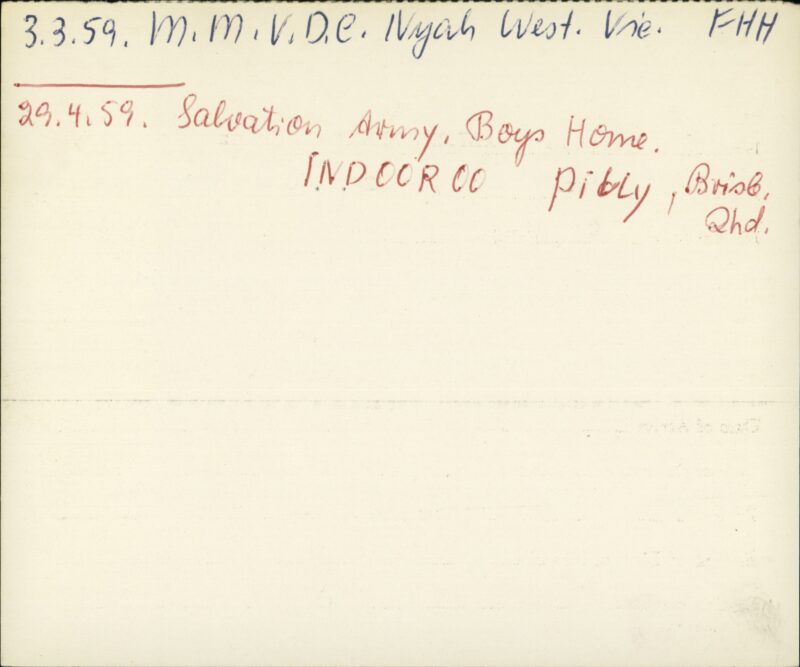 3.3.59. M.M.V.D.C. Nyah West. Vic. FHH
29.4.59. Salvation Army. Boys Home.
INDOOROO Pibly, Brisb.
Qld.